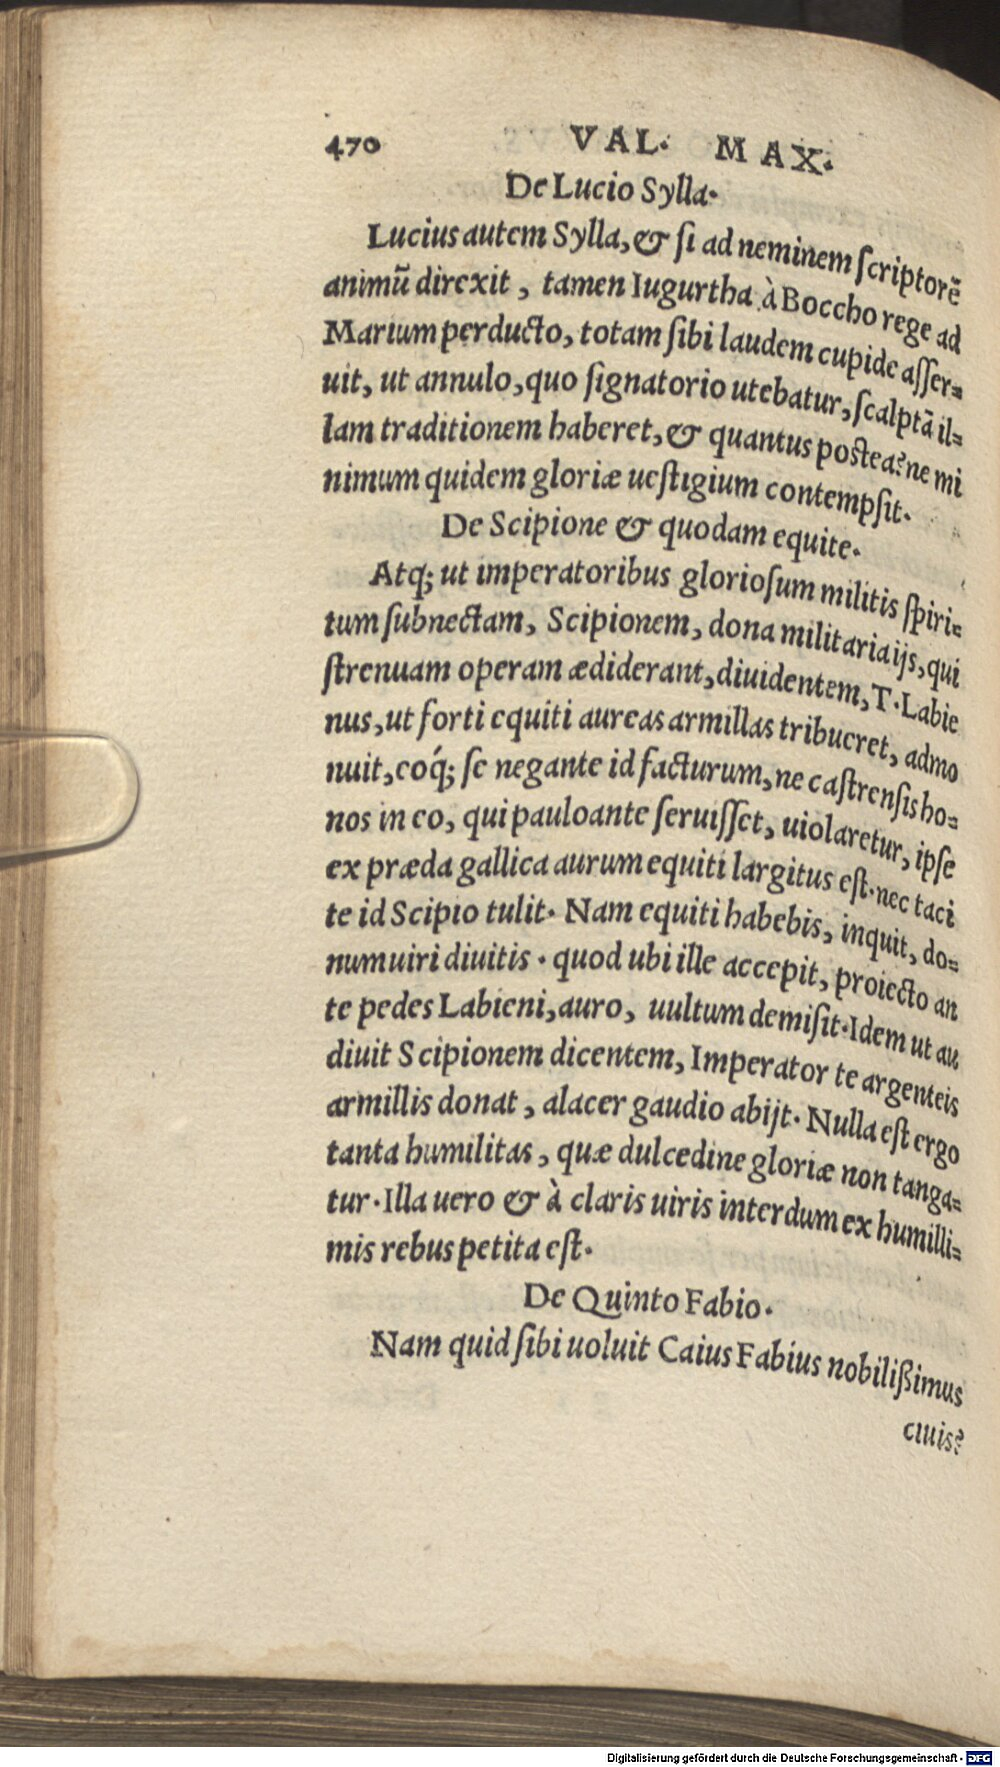 470 VAL. MAX.
De Lucio Sylla.
Lucius autem Sylla, & ſi ad neminem ſcriptorē
animũ direxit, tamen Iugurtha à Boccho rege ad
Marium perducto, totam ſibi laudem cupide aſſer=
uit, ut annulo, quo ſignatorio utebatur, ſcalptā il=
lam traditionem haberet, & quantus poſtea? ne mi
nimum quidem gloriæ ueſtigium contempſit.
De Scipione & quodam equite.
Atq; ut imperatoribus glorioſum militis ſpiri=
tum ſubnectam, Scipionem, dona militaria ijs, qui
ſtrenuam operam ædiderant, diuidentem, T. Labie
nus, ut forti equiti aureas armillas tribueret, admo
nuit, eoq́; ſe negante id facturum, ne caſtrenſis ho=
nos in eo, qui pauloante ſeruiſſet, uiolaretur, ipſe
ex præda gallica aurum equiti largitus eſt. nec taci
te id Scipio tulit. Nam equiti habebis, inquit, do=
num uiri diuitis. quod ubi ille accepit, proiecto an
te pedes Labieni, auro, uultum demiſit. Idem ut au
diuit Scipionem dicentem, Imperator te argenteis
armillis donat, alacer gaudio abijt. Nulla eſt ergo
tanta humilitas, quæ dulcedine gloriæ non tanga=
tur. Illa uero & à claris uiris interdum ex humilli=
mis rebus petita eſt.
De Quinto Fabio.
Nam quid ſibi uoluit Caius Fabius nobilißimus
ciuis?
Digitalisierung gefördert durch die Deutsche Forschungsgemeinschaft - DFG